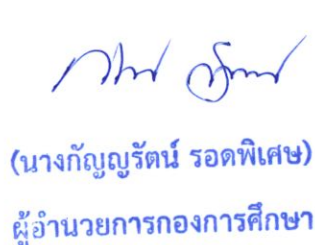 (นางกัญญรัตน์ รอดพิเศษ)
ผู้อำนวยการกองการศึกษา